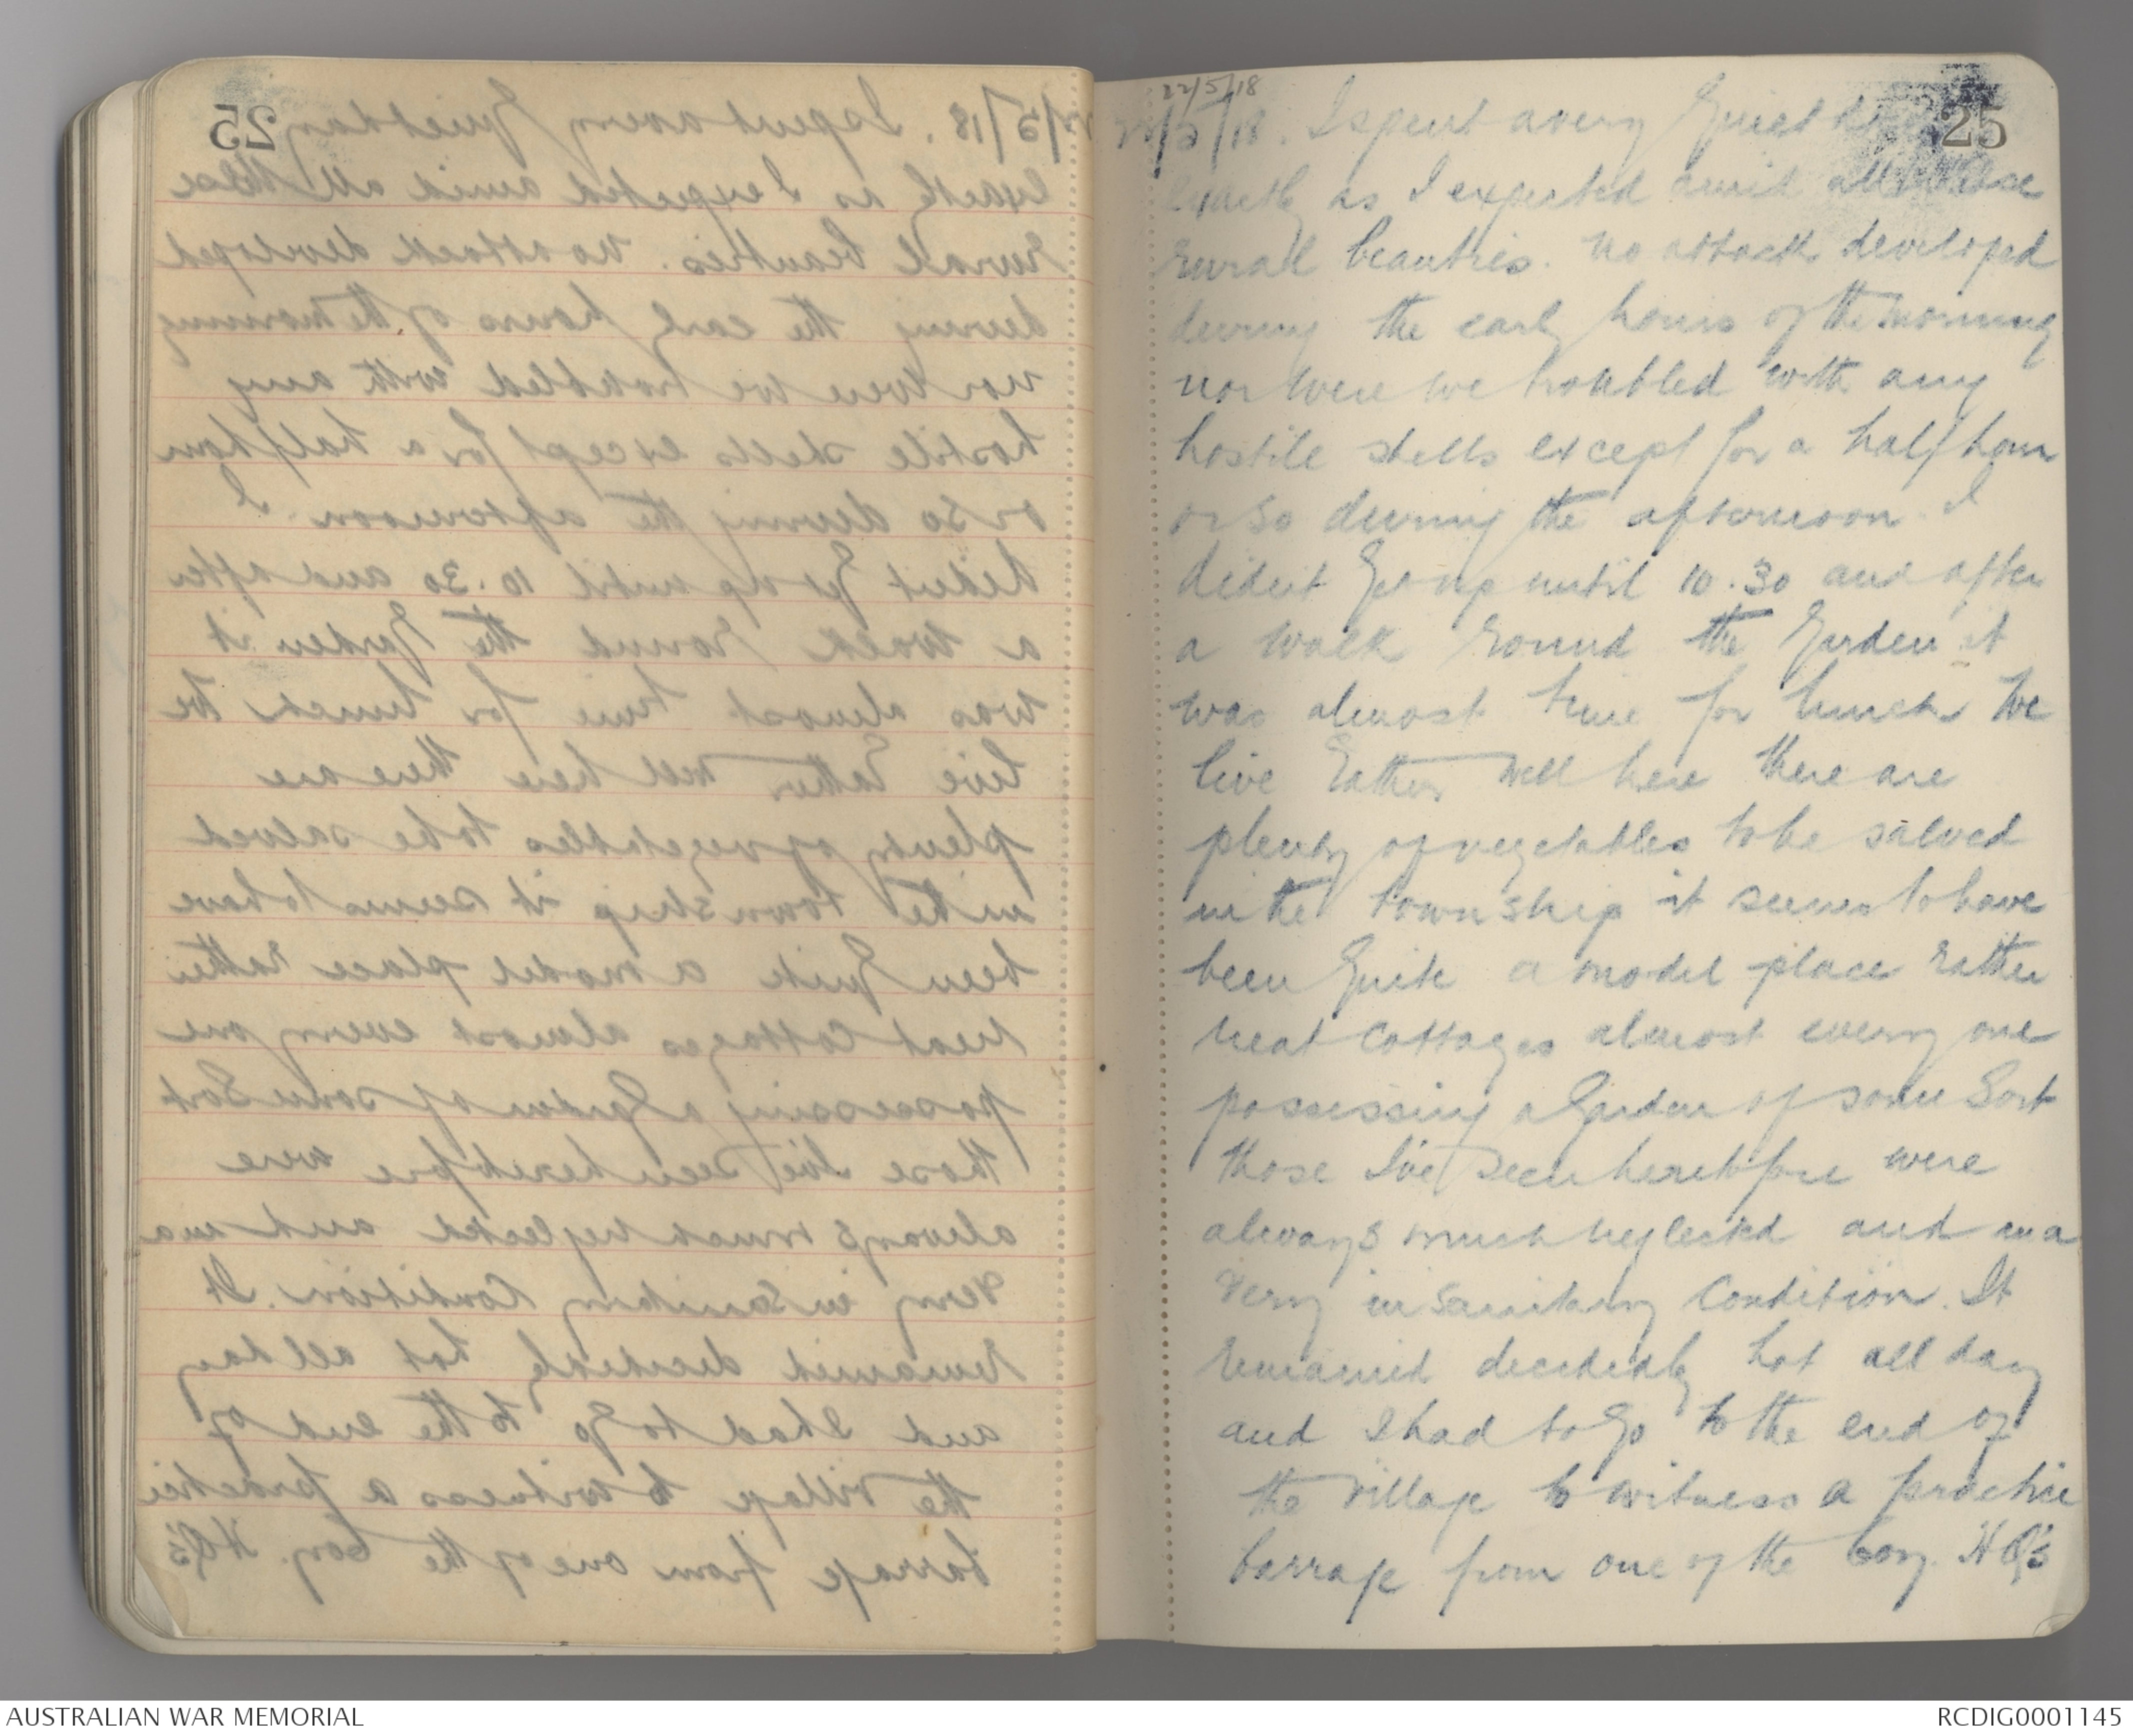 25
22/5/18
22/5/18. I spent a very Quiet day
Exactly as I expected amid all these
rural beauties. No attack developed
during the early hours of the morning
nor were we troubled with any
hostile shells except for a half hour
or so during the afternoon I
dident Get up until 10.30 and after
a walk round the Garden it
was almost time for lunch We
live Rather well here there are
plenty of vegetables to be salved
in the township it seems to have
been Quite a model place rather
neat Cottages almost every one
possessing a Garden of some Sort
those I've seen heretofore were
always much neglected and in a
very insanitary Condition. It
remained decidedly hot all day
and I had to Go to the end of
the village to witness a practice
barrage from one of the Coy. HQ's
AUSTRALIAN WAR MEMORIAL
RCDIG0001145